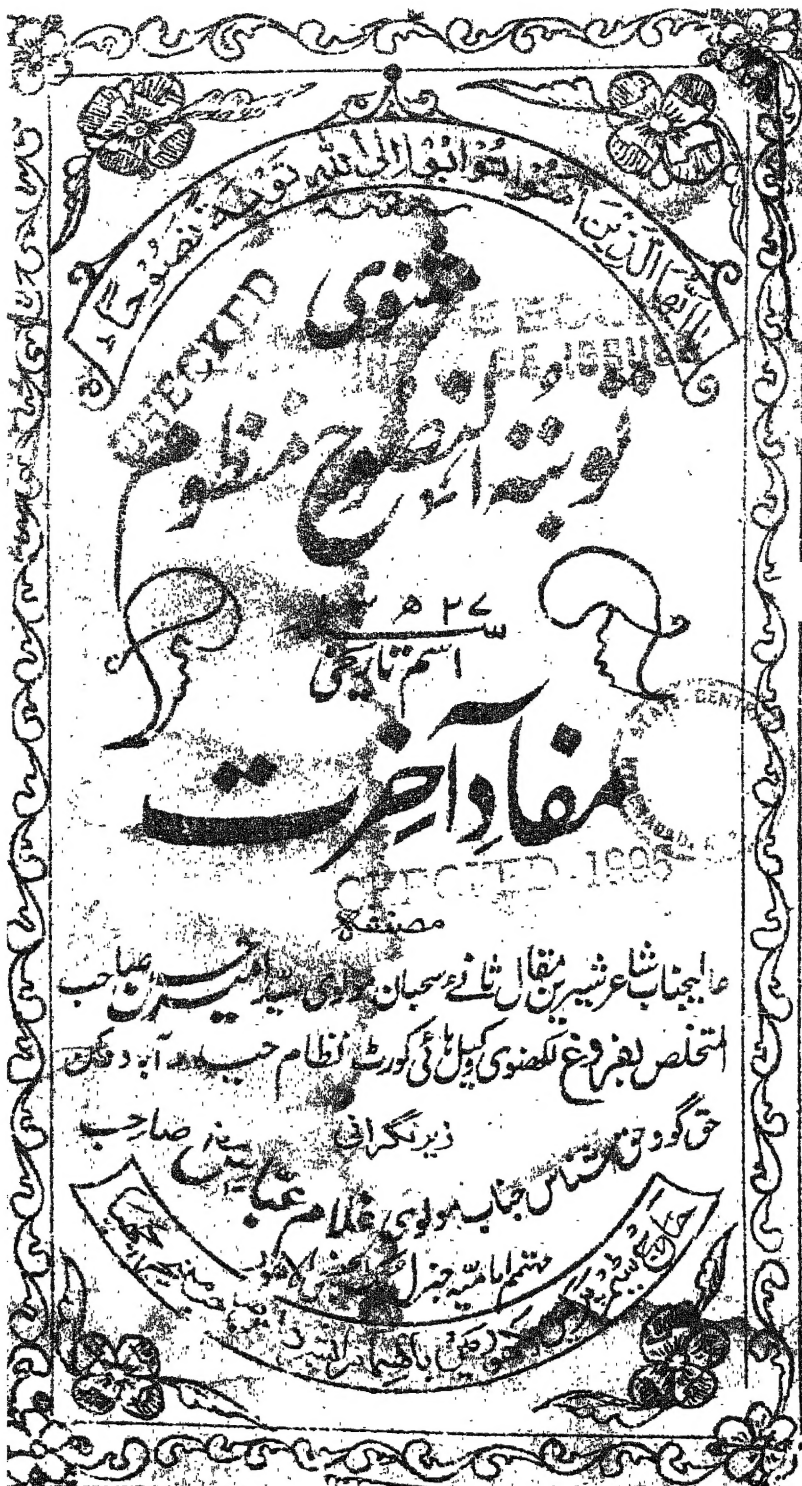 یا ایها الذین امنوا توبوا الی الله توبة نصوحاً
مثنوی
CHECKED
توبتہ النصوح منظوم
۱۳ ھ ۲۷
اسم تاریخی
مفادِ آخرت
CHECKED-1995
مصنفہ
عالیجناب شاعر شیرین مقال ثانیٔ سحبان مولوی سید امیر حسن صاحب
المتخلص بفروغ لکھنوی وکیل ہائی کورٹ نظام حیدرآباد دکن
زیر نگرانی
حق گو و حق شناس جناب مولوی غلام عباس صاحب
مہتمم امامیہ جنرل بک ایجنسی لاہور
سٹیم پریس لاہور میں باہتمام